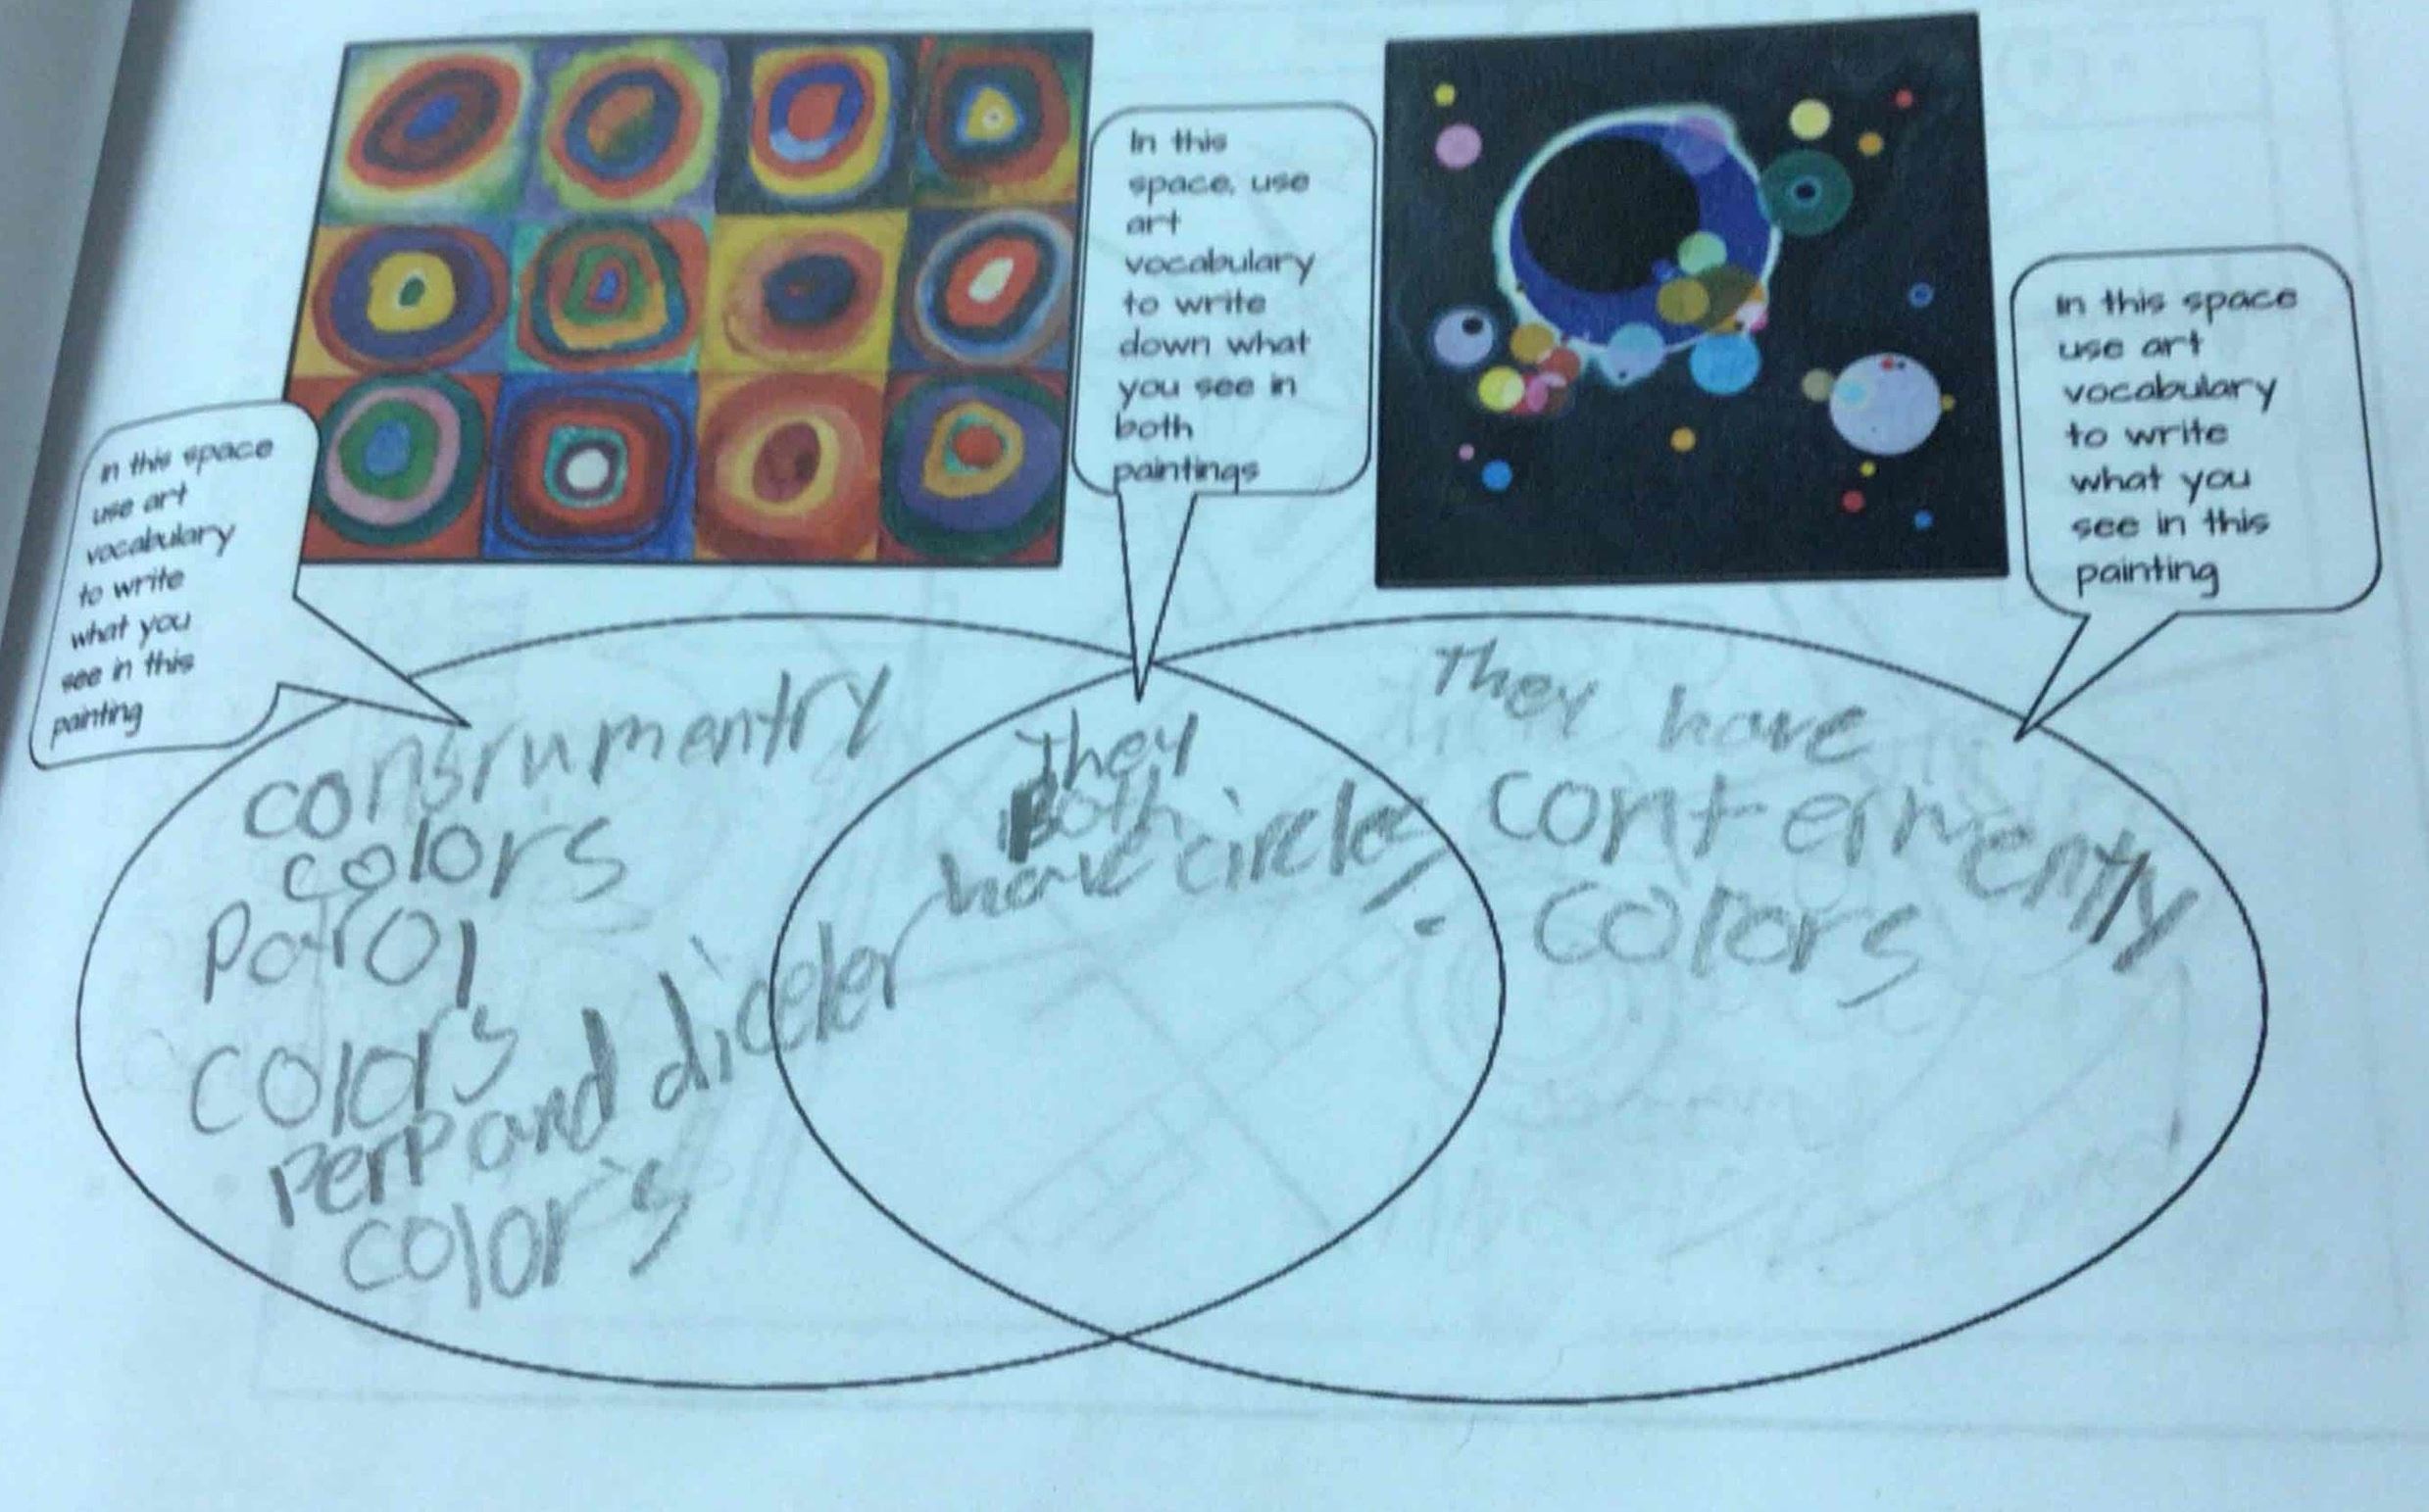 In this
space, use
art
vocabulary
to write
down what
you see in
both
paintings
In this space
use art
vocabulary
to write
what you
see in this
painting
In this space
use art
vocabulary
to write
what you
see in this
painting
consrumentry
colors
Parol
colors
Perpand diceler
colors
They
Both
have circles.
They have
conternently
colors